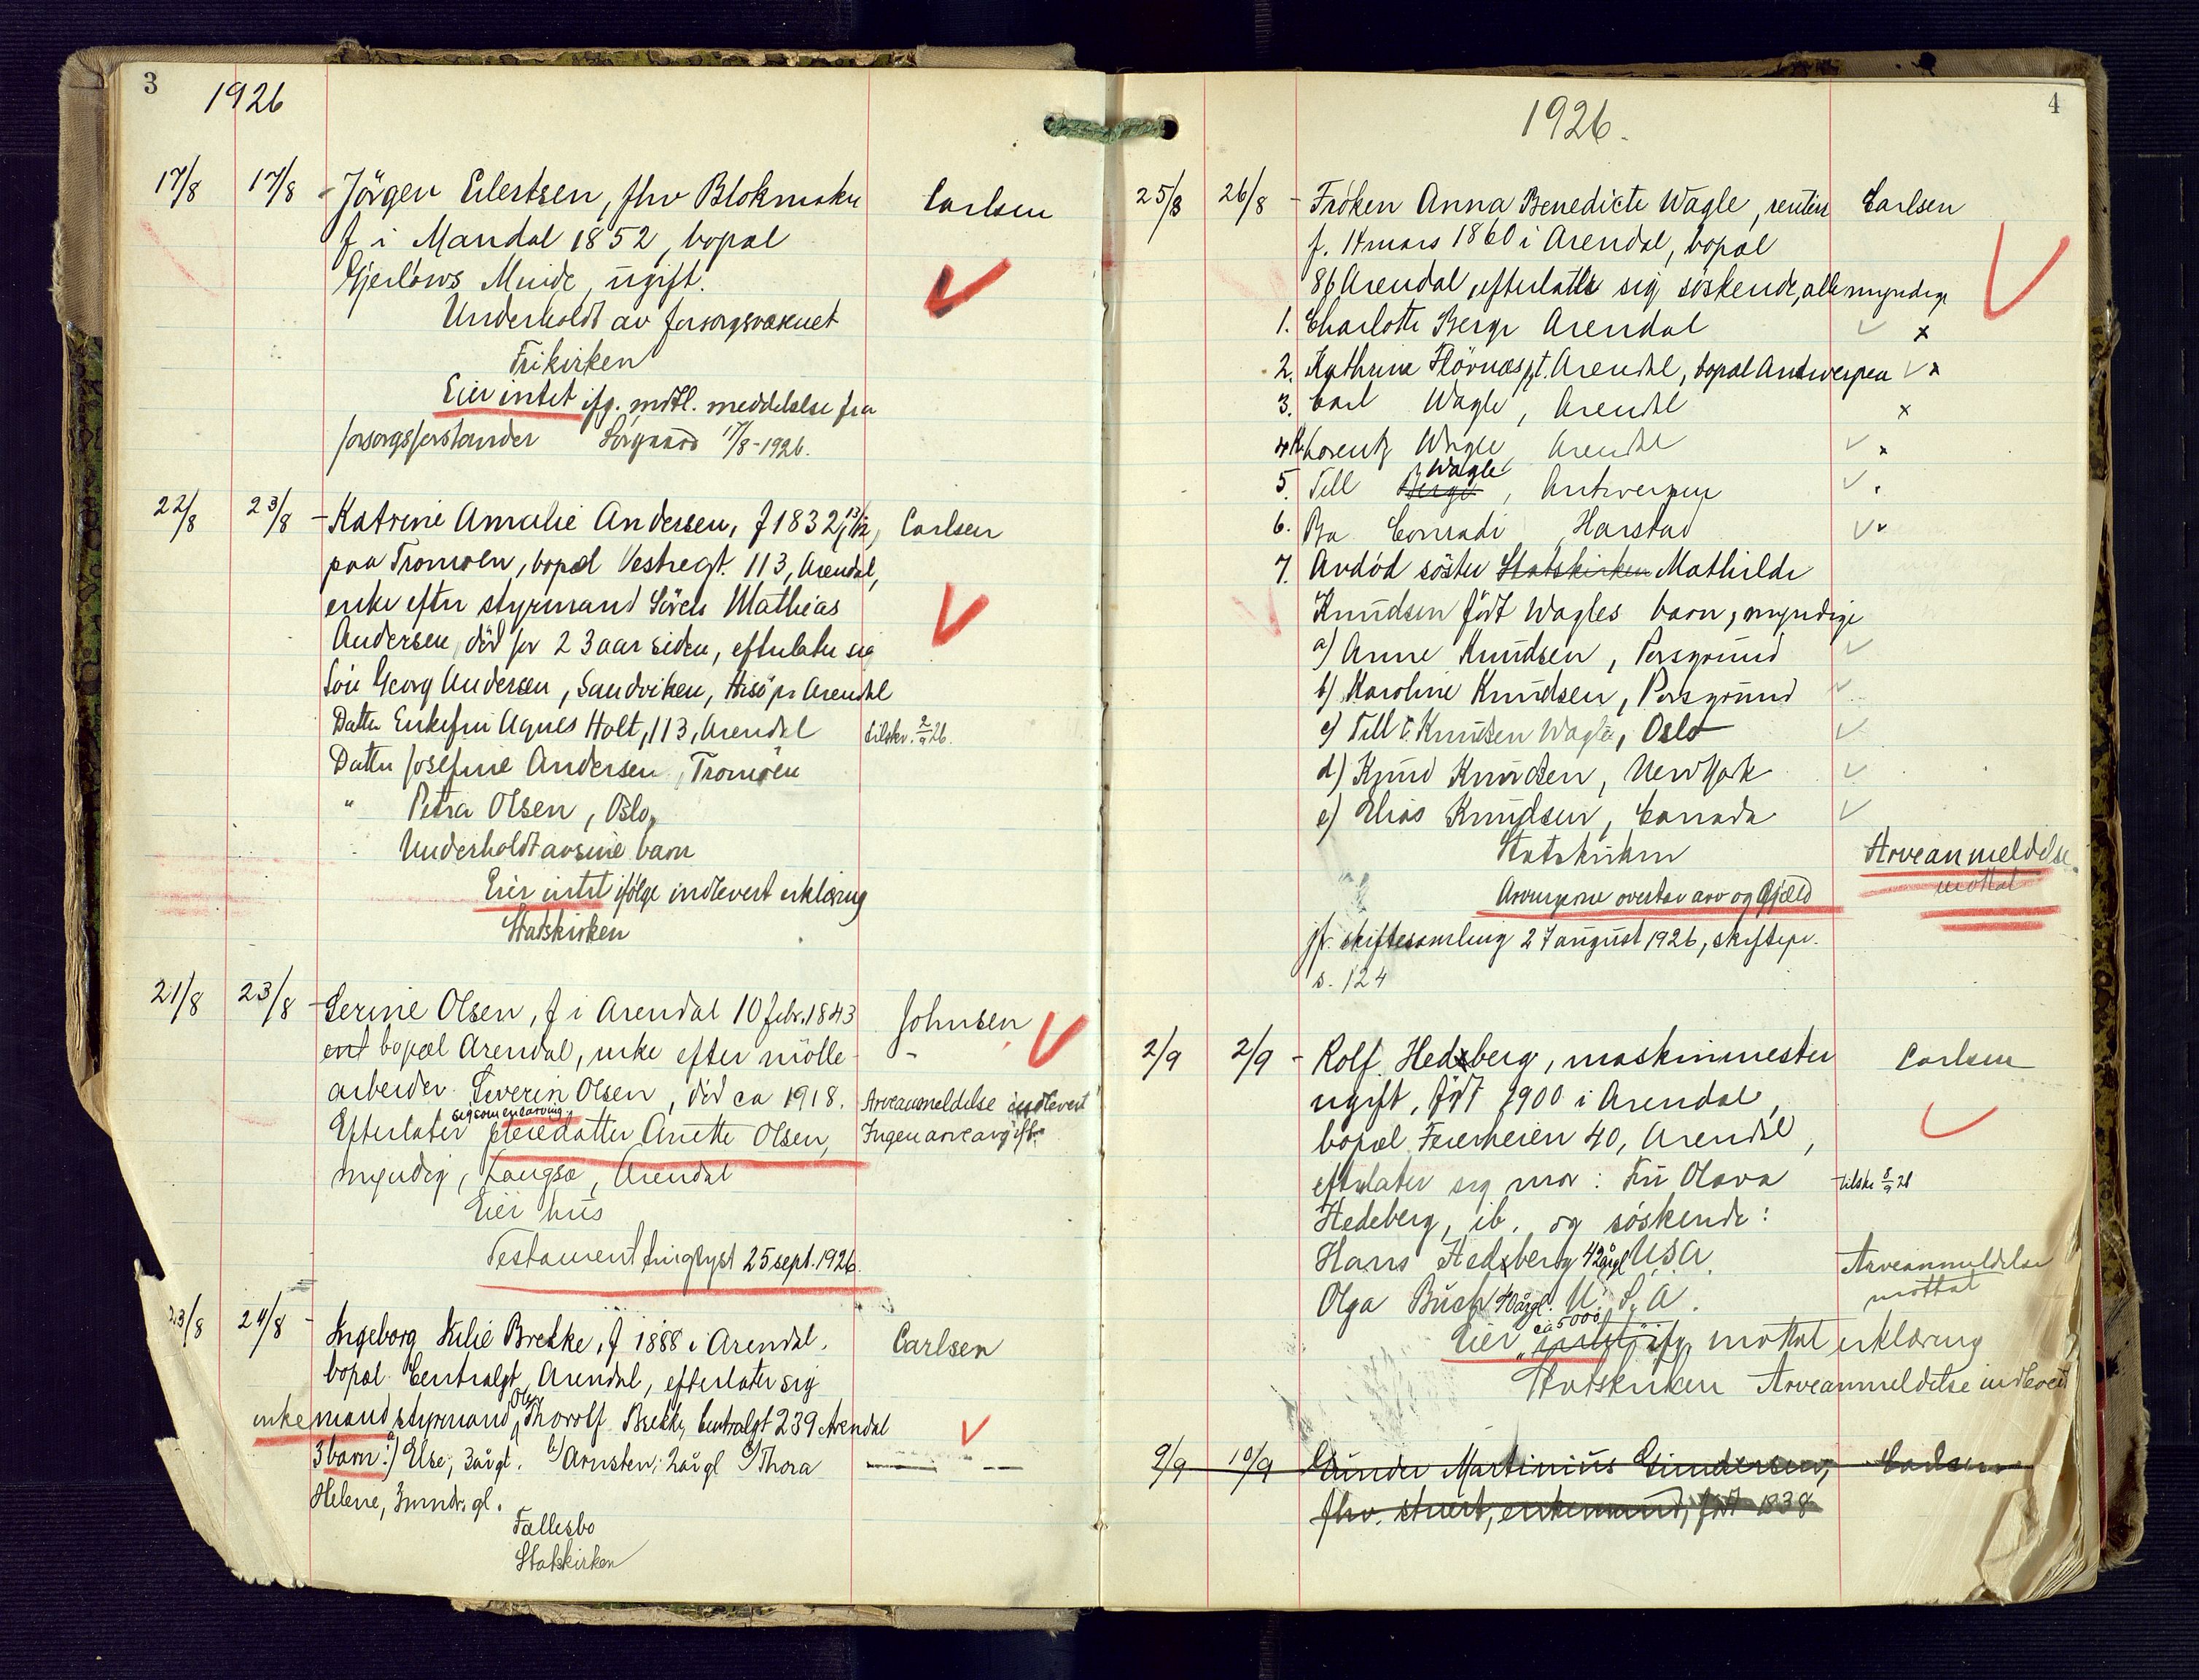 3
1926
17/8 17/8 - Jörgen Eilertsen, fhv Blokmaker Carlsen
f i Mandal 1852, bopæl
Gjerlöws Minde, ugift.
Underholdt av forsorgsvæsenet
Frikirken
Eier intet ifg. mdtl. meddelelse fra
forsorgsforstander 17/8-1926.
22/8 23/8 - Katrine Amalie Andersen, f 1832, 13/12, Carlsen
paa Tromöen, bopæl Vestregt. 113, Arendal,
enke efter styrmand Sören Mathias
Andersen, död for 23 aar siden, efterlater sig
Sön Georg Andersen, Sandviken, Hisö pr Arendal
Datter Enkefru Agnes Holt, 113, Arendal tilskr. 2/9 26.
Datter Josefine Andersen, Tromöen
" Petra Olsen, Oslo,
Underholdt av sine barn
Eier intet ifölge indlevert erklæring
Statskirken
21/8 23/8 - Serine Olsen, f i Arendal 10 febr. 1843 Johnsen
ent bopæl Arendal, enke efter mölle-
arbeider Severin Olsen, död ca 1918. Arveanmeldelse indlevert
sig som enearving
Efterlater pleiedatter Anette Olsen, Ingen arveavgift.
myndig, Langsæ, Arendal
Eier hus
Testament tinglyst 25 sept. 1926.
23/8 24/8 - Ingeborg Julie Brekke, f 1888 i Arendal. Carlsen
bopæl Centralgt, Arendal, efterlater sig
enkemand styrmand Olav Thorolf Brekke, Centralgt 239 Arendal
3 barn: a) Else, 3 aar gl. b) Arnsten, 2 aar gl c) Thora
Helene, 3 mndr. gl.
Fællesbo
Statskirken
4
1926.
25/8 26/8 - Fröken Anna Benedicte Wagle, rentier Carlsen
f. 14 mars 1860 i Arendal, bopæl
86 Arendal, efterlater sig söskende, alle myndige
1. Charlotte Berge Arendal
2. Kathrine Flövnæs p.t. Arendal, bopæl Antwerpen
3. Carl Wagle, Arendal
4. Lorentz Wagle, Arendal
5. Till Berge Wagle, Antwerpen
6. Conradi, Harstad
7. Avdöd söster Statskirken Mathilde
Knudsen födt Wagles barn, myndige
a) Anne Knudsen, Porsgrund
b) Karoline Knudsen, Porsgrund
c) Till Knudsen Wagle, Oslo
d) Knud Knudsen, New York
e) Elias Knudsen, Canada
Statskirken Arveanmeldelse
mottat
Arvingerne overtar arv og gjæld
jfr. skiftesamling 27 august 1926, skiftepr.
s. 124
2/9 2/9 - Rolf Hedeberg, maskinmester Carlsen
ugift, födt 1900 i Arendal,
bopæl Feierheien 40, Arendal,
efterlater sig mor: Fru Olava tilskr 8/9 26
Hedeberg, ib. og söskende:
Hans Hedeberg 42 aar gl U.S.A. Arveanmeldelse
mottat
Olga Buch 40 aar gl. U.S.A.
ca 5000
Eier "intet" ifg. mottat erklæring
Statskirken Arveanmeldelse indlevert
9/9 10/9 Gunder Martinius Gundersen, Carlsen
fhv. stuert, enkemand, födt 1838